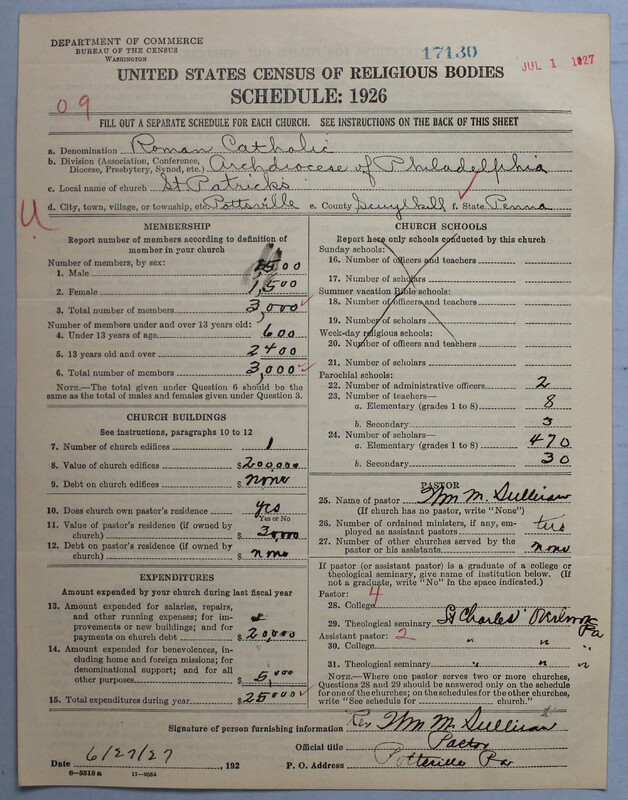 DEPARTMENT OF COMMERCE
BUREAU OF THE CENSUS
WASHINGTON
17130
JUL 1 1927
UNITED STATES CENSUS OF RELIGIOUS BODIES
SCHEDULE: 1926
09
FILL OUT A SEPARATE SCHEDULE FOR EACH CHURCH. SEE INSTRUCTIONS ON THE BACK OF THIS SHEET
a. Denomination Roman Catholic
b. Division (Association, Conference, Diocese, Presbytery, Synod, etc.) Archdiocese of Philadelphia
c. Local name of church St Patricks
d. City, town, village, or township, etc. Pottsville e. County Scuylkill f. State Penna
U
MEMBERSHIP
Report number of members according to definition of
member in your church
Number of members, by sex:
1. Male 1500
2. Female 1,500
3. Total number of members 3,000
Number of members under and over 13 years old:
4. Under 13 years of age 600
5. 13 years old and over 2400
6. Total number of members 3,000
NOTE.—The total given under Question 6 should be
the same as the total of males and females given under Question 3.
CHURCH BUILDINGS
See instructions, paragraphs 10 to 12
7. Number of church edifices 1
8. Value of church edifices $200,000
9. Debt on church edifices $ none
10. Does church own pastor's residence? yes
Yes or No
11. Value of pastor's residence (if owned by
church) $ 30,000
12. Debt on pastor's residence (if owned by
church) $ none
EXPENDITURES
Amount expended by your church during last fiscal year
13. Amount expended for salaries, repairs,
and other running expenses; for im-
provements or new buildings; and for
payments on church debt $ 20,000
14. Amount expended for benevolences,
including home and foreign missions; for
denominational support; and for all
other purposes $ 5,000
15. Total expenditures during year $ 25000
CHURCH SCHOOLS
Report here only schools conducted by this church
Sunday schools:
16. Number of officers and teachers
17. Number of scholars
Summer vacation Bible schools:
18. Number of officers and teachers
19. Number of scholars
Week-day religious schools:
20. Number of officers and teachers
21. Number of scholars
Parochial schools:
22. Number of administrative officers 2
23. Number of teachers—
a. Elementary (grades 1 to 8) 8
b. Secondary 3
24. Number of scholars—
a. Elementary (grades 1 to 8) 470
b. Secondary 30
PASTOR
25. Name of pastor Wm M. Sullivan
(If church has no pastor, write "None")
26. Number of ordained ministers, if any, em-
ployed as assistant pastors two
27. Number of other churches served by the
pastor or his assistants none
If pastor (or assistant pastor) is a graduate of a college or
theological seminary, give name of institution below. (If
not a graduate, write "No" in the space indicated.)
Pastor: 4
28. College
29. Theological seminary St Charles' Overbrook Pa
Assistant pastor: 2
30. College " " "
31. Theological seminary " " "
NOTE.—Where one pastor serves two or more churches,
Questions 28 and 29 should be answered only on the schedule
for one of the churches; on the schedules for the other churches,
write "See schedule for church."
Signature of person furnishing information Rev Wm M. Sullivan
Official title Pastor
Date 6/27/27, 192 P. O. Address Pottsville Pa
8-5518a 11-9654